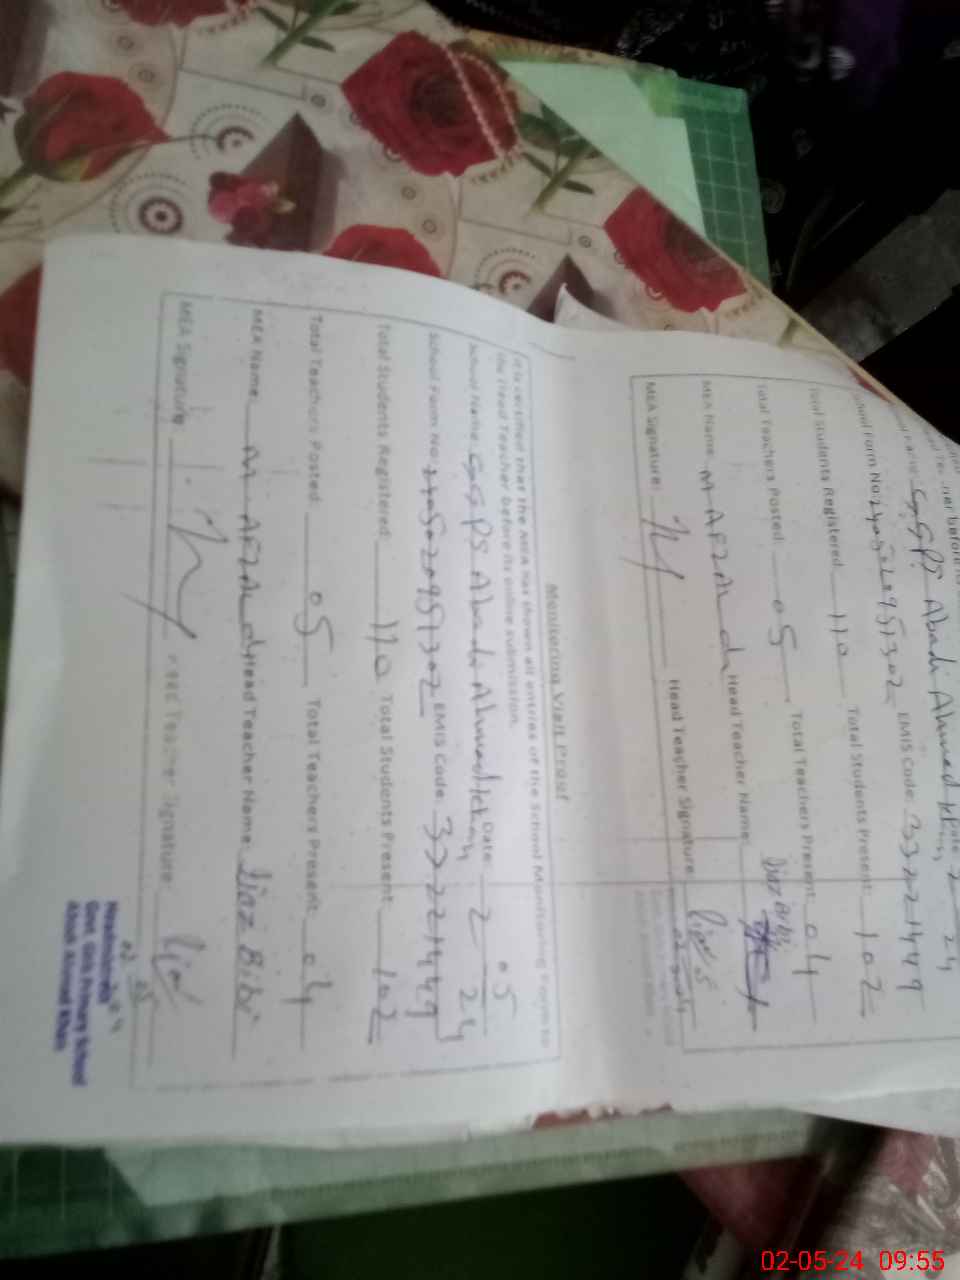 School Name: GGPS Abadi Ahmad Khan, Date: 2 24
School Form No: EMIS Code: 33221449
Total Students Registered: 110 Total Students Present: 102
Total Teachers Posted: 05 Total Teachers Present: 04
MEA Name: M AFZAL Head Teacher Name:
MEA Signature: Head Teacher Signature:
Monitoring Visit Proof
It is certified that the MEA has shown all entries of the School Monitoring Form to
the Head Teacher before its online submission.
School Name: GGPS Abadi Ahmad Khan Date: 2 05 24
School Form No: EMIS Code: 33221449
Total Students Registered: 110 Total Students Present: 102
Total Teachers Posted: 05 Total Teachers Present: 04
MEA Name: M AFZAL Head Teacher Name: Bibi
MEA Signature: Head Teacher Signature:
Headmistress
Govt. Girls Primary School
Abadi Ahmad Khan
02-05-24 09:55